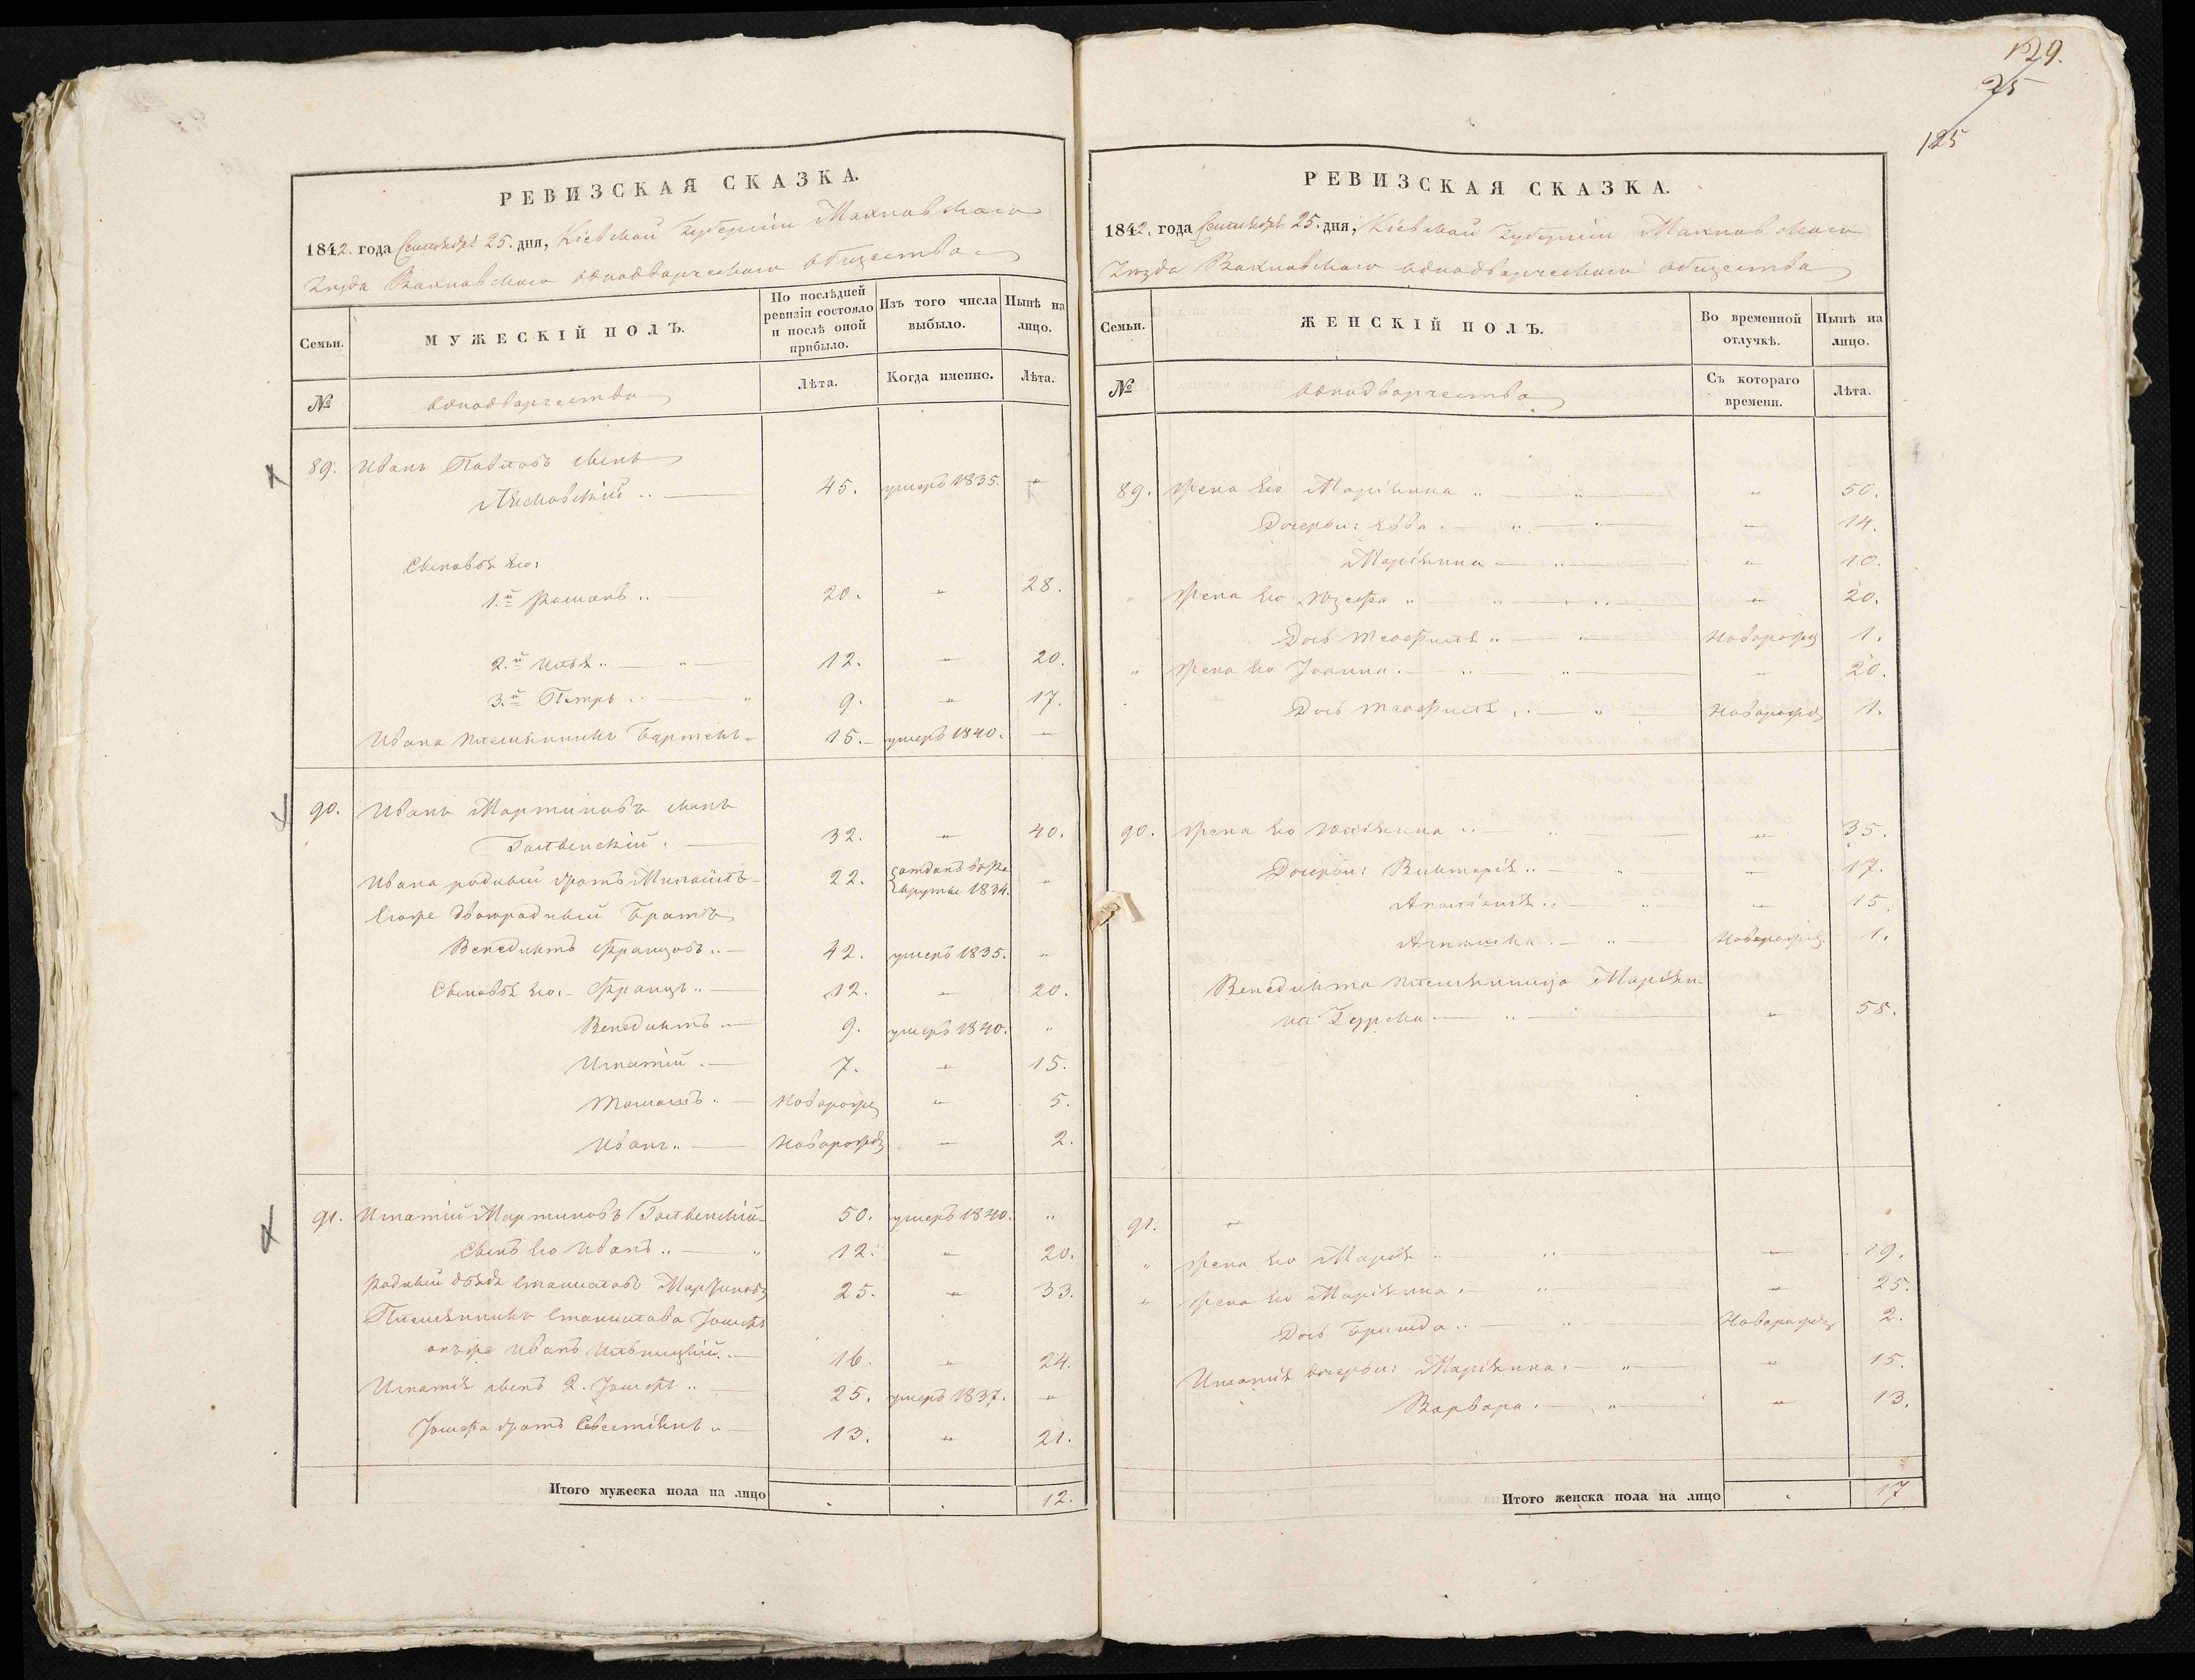 РЕВИЗСКАЯ СКАЗКА.
1842. года Сентября 25. дня, Кіевской Губерніи Махновскаго
Уезда Вахновскаго однодворческаго общества
Семьи.
МУЖЕСКІЙ ПОЛЪ.
По послѣдней ревизіи состояло и послѣ оной прибыло.
Изъ того числа выбыло.
Нынѣ на лицо.
№
однодворчества
Лѣта.
Когда именно.
Лѣта.
89. Иванъ Павловъ сынъ
Лясковскій 45. умеръ 1835. "
Сыновья его:
1.й Романъ 20. " 28.
2.й Илья 12. " 20.
3.й Петръ 9. " 17.
Ивана племянникъ 15. умеръ 1840. "
90. Иванъ Мартиновъ сынъ
32. " 40.
Ивана родный братъ Михайло 22. отданъ въ рекруты 1834. "
Егоже двоюродный братъ
Венедиктъ Францовъ 42. умеръ 1835. "
Сыновья его: Францъ 12. " 20.
Венедиктъ 9. умеръ 1840. "
Игнатій 7. " 15.
Томашъ Новорожд " 5.
Иванъ Новорожд " 2.
91. Игнатій Мартиновъ 50. умеръ 1840. "
Сынъ его Иванъ 12. " 20.
Родный дядя Станиславъ Мартиновъ 25. " 33.
Племянникъ Станислава Іосифъ
онъже Иванъ 16. " 24.
Игнатія сынъ 2. Іосифъ 25. умеръ 1837. "
Іосифа братъ Севестіянъ 13. " 21.
Итого мужеска пола на лицо . . 12.
129.
25
125
РЕВИЗСКАЯ СКАЗКА.
1842. года Сентября 25. дня, Кіевской Губерніи Махновскаго
Уезда Вахновскаго однодворческаго общества
Семьи.
ЖЕНСКІЙ ПОЛЪ.
Во временной отлучкѣ.
Нынѣ на лицо.
№
однодворчества
Съ котораго времени.
Лѣта.
89. Жена его Маріянна " 50.
Дочери: Ева " 14.
Маріянна " 10.
" Жена его Юзефа " 20.
Дочь Теофиля Новорожд 1.
" Жена его Іоанна " 20.
Дочь Теофиля Новорожд 1.
90. Жена его Юліянна " 35.
Дочери: Викторія " 17.
Аполонія " 15.
Новорожд 1.
Венедикта племянница Маріян-
на " 58.
91. "
" Жена его Марія " 19.
" Жена его Маріянна " 25.
Дочь Бригида Новорожд 2.
Игнатія дочери: Маріянна " 15.
Варвара " 13.
Итого женска пола на лицо . 17